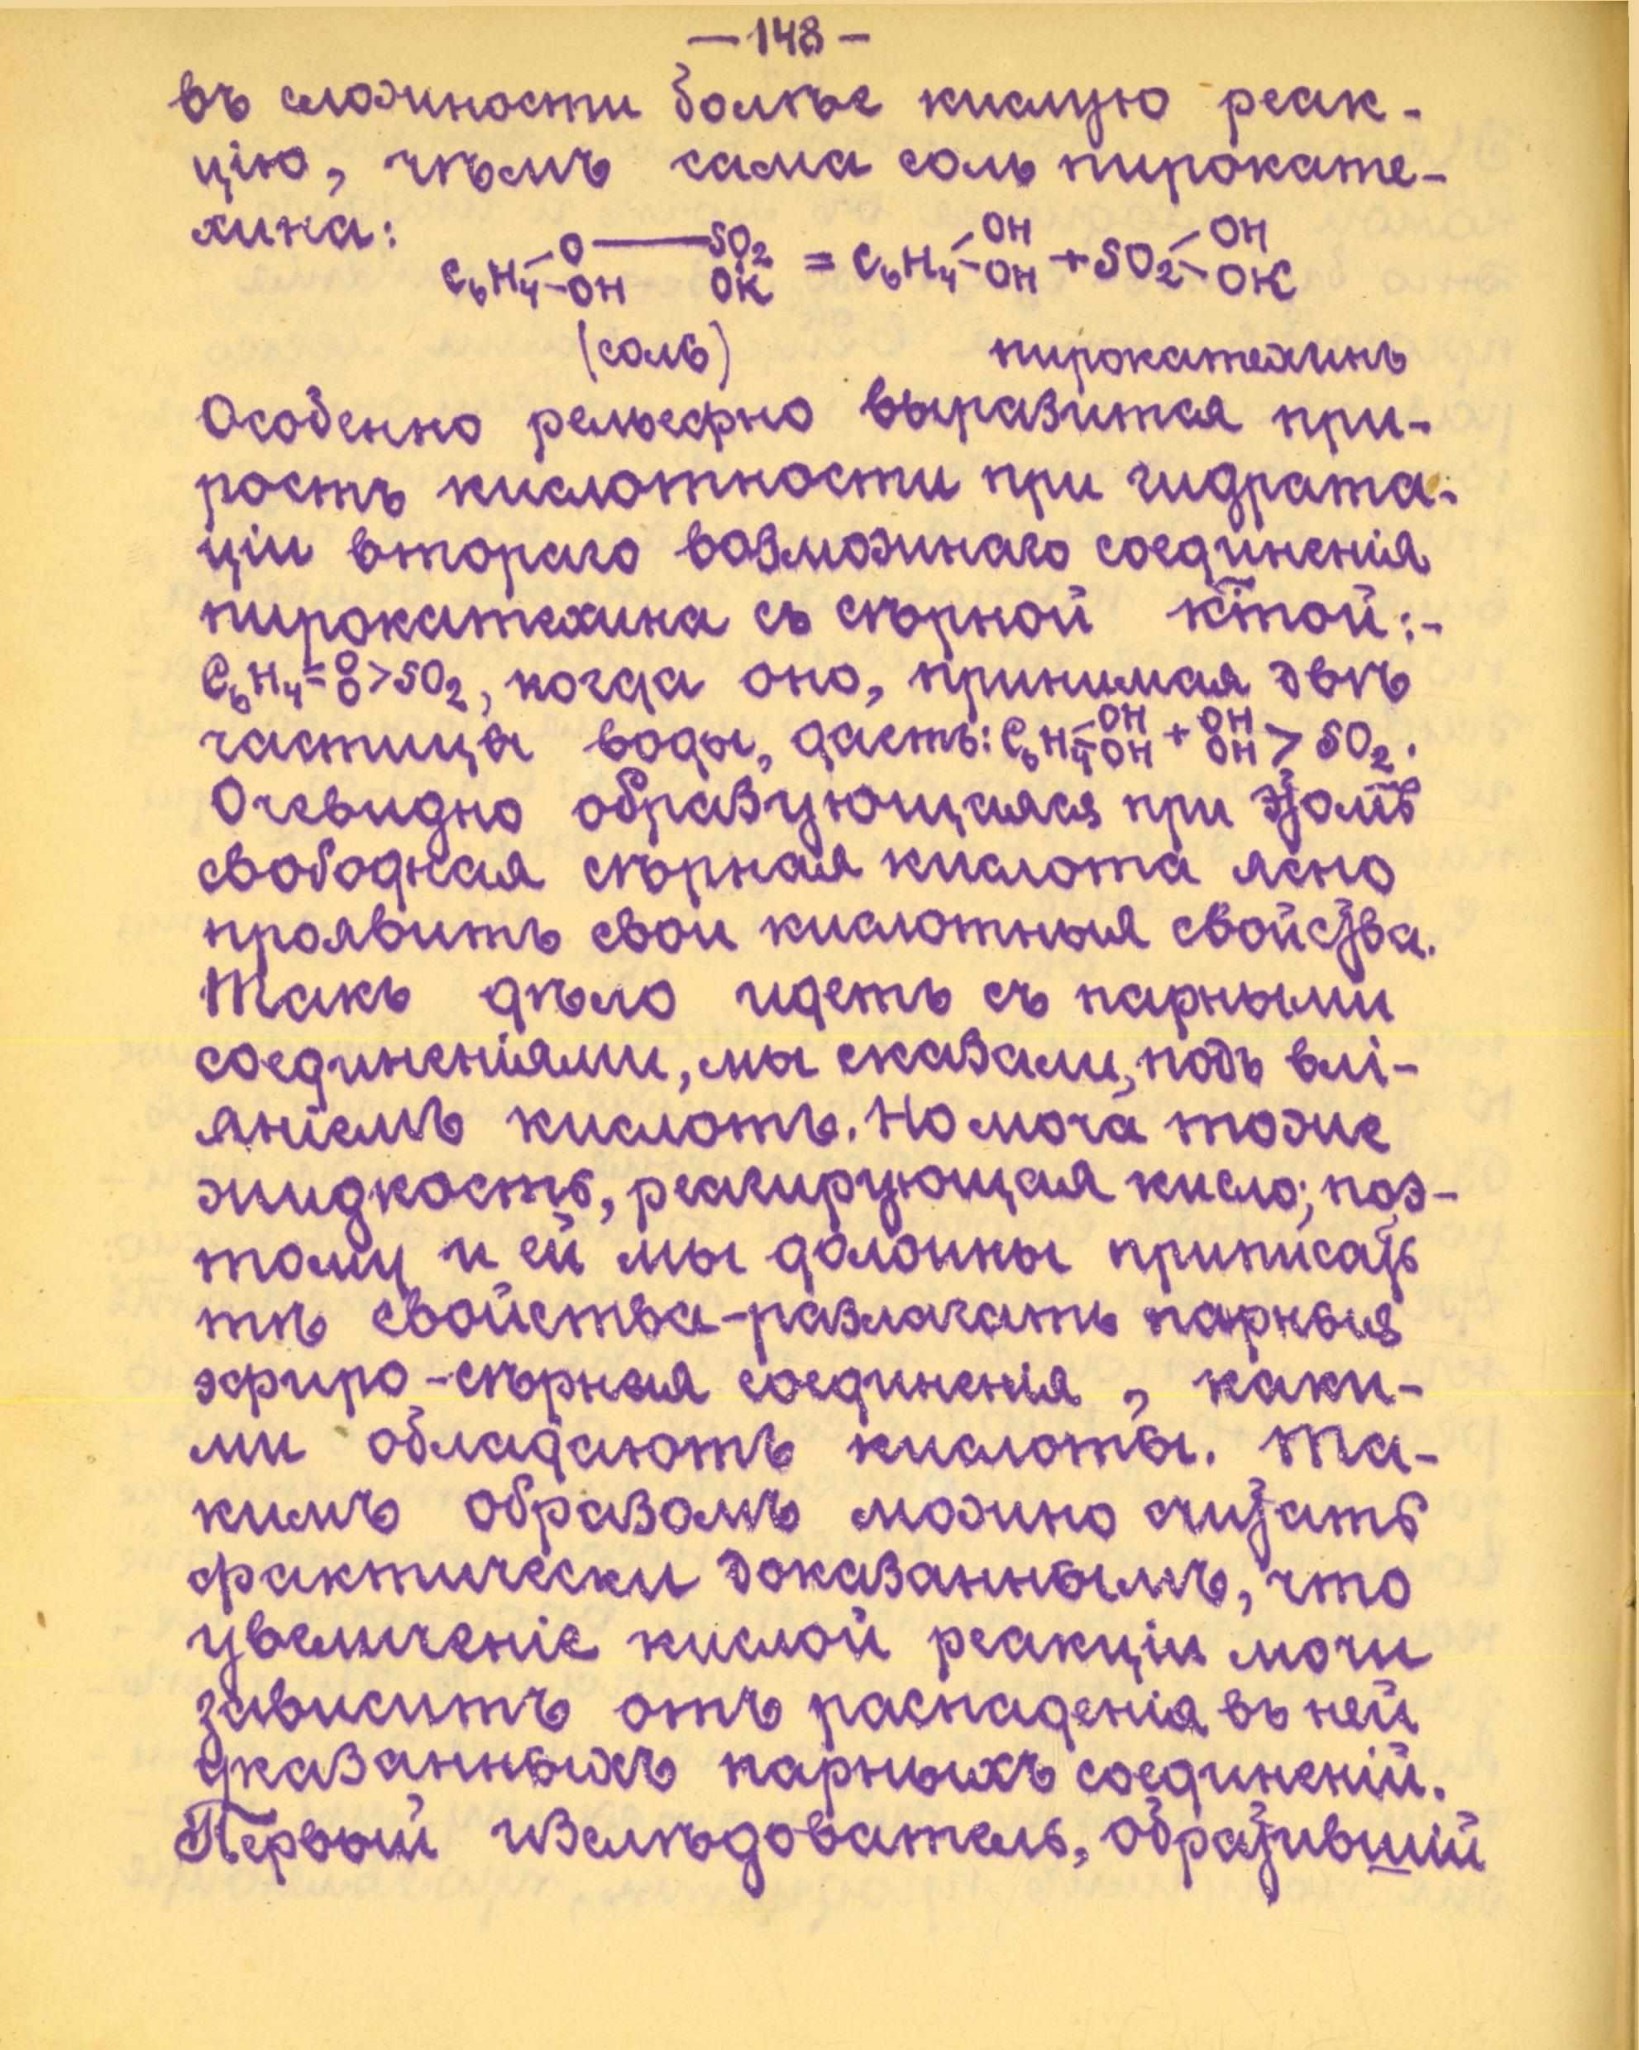 — 148 —
въ сложности болѣе кислую реак-
цію, чѣмъ сама соль пирокате-
хина:
C6H4 –O——SO2 –OH OK = C6H4 –OH –OH + SO2 –OH –OK
(соль) пирокатехинъ
Особенно рельефно выразится при-
ростъ кислотности при гидрата-
ціи втораго возможнаго соединенія
пирокатехина съ сѣрной к̅той:-
C6H4=O O>SO2, когда оно, принимая двѣ
частицы воды, дастъ: C6H4 –OH –OH + OH OH > SO2.
Очевидно образующаяся при этомъ
свободная сѣрная кислота ясно
проявитъ свои кислотныя свойства.
Такъ дѣло идетъ съ парными
соединеніями, мы сказали, подъ влі-
яніемъ кислотъ. Но моча́ тоже
жидкость, реагирующая кисло; поэ-
тому и ей мы должны приписать
тѣ свойства-разлагать парныя
эфиро-сѣрныя соединенія, каки-
ми обладаютъ кислоты. Та-
кимъ образомъ можно считать
фактически доказаннымъ, что
увеличеніе кислой реакціи мочи
зависитъ отъ распаденія въ ней
указанныхъ парныхъ соединеній.
Первый изслѣдователь, обративший